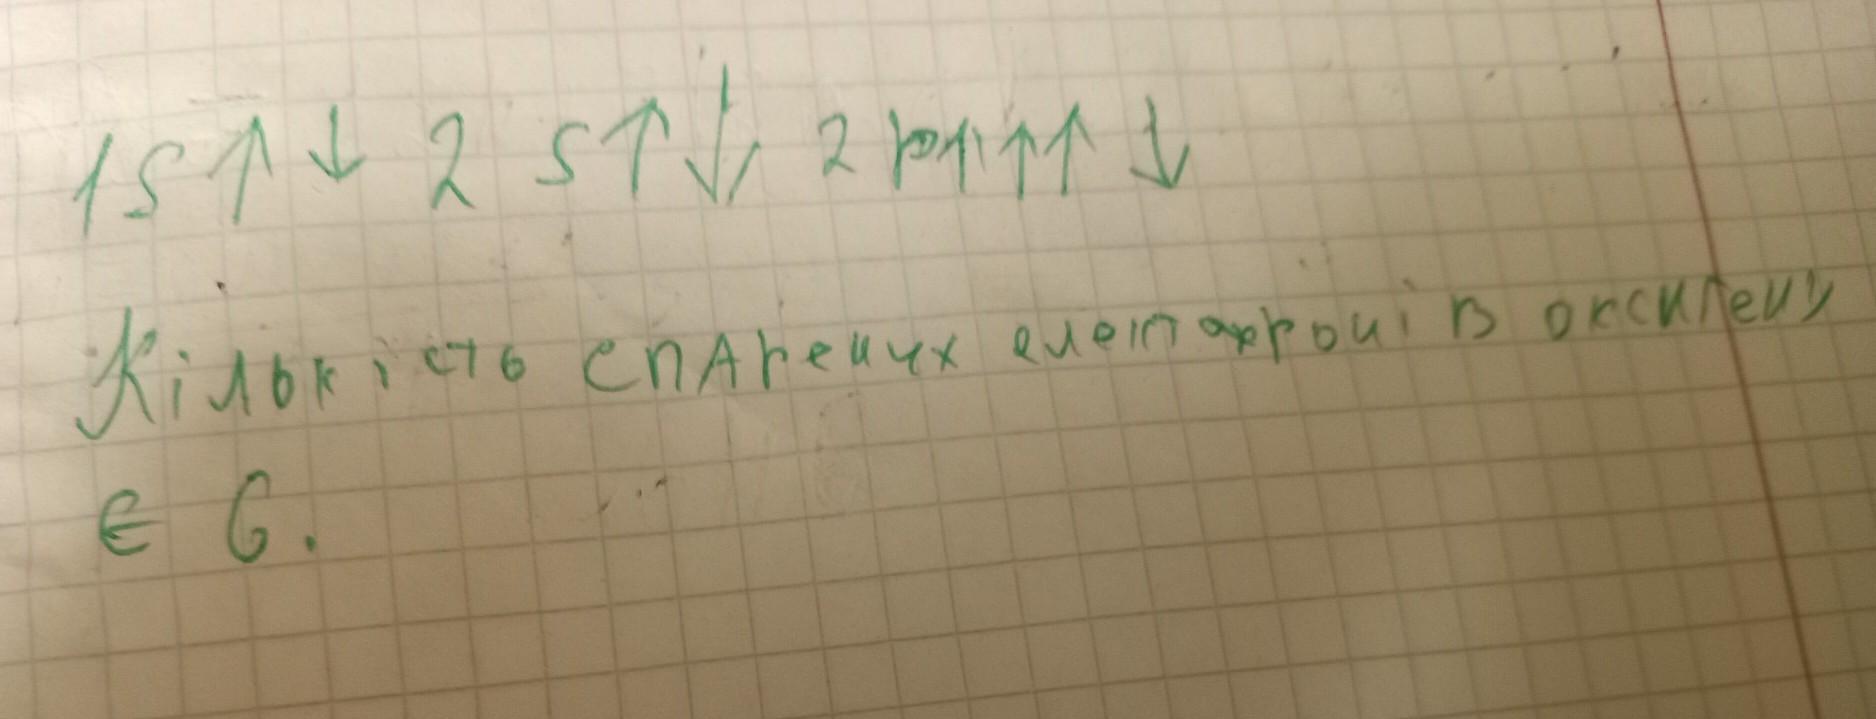 1s↑↓ 2s↑↓, 2p↑↑↑↓
Кількість спарених електронів оксигену
є 6.